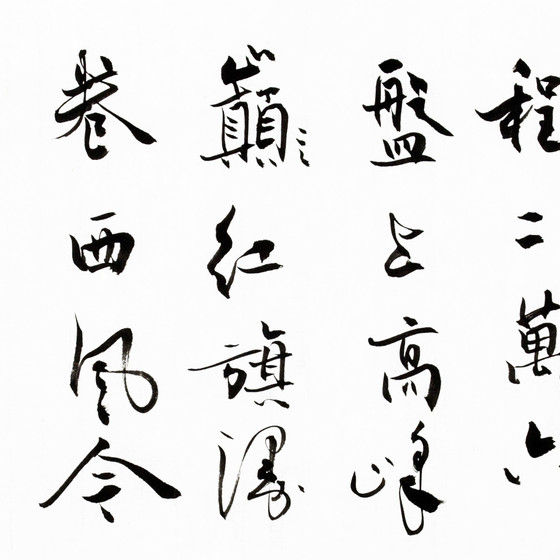 程二萬六
盤上高峰
巔紅旗漫
卷西風今